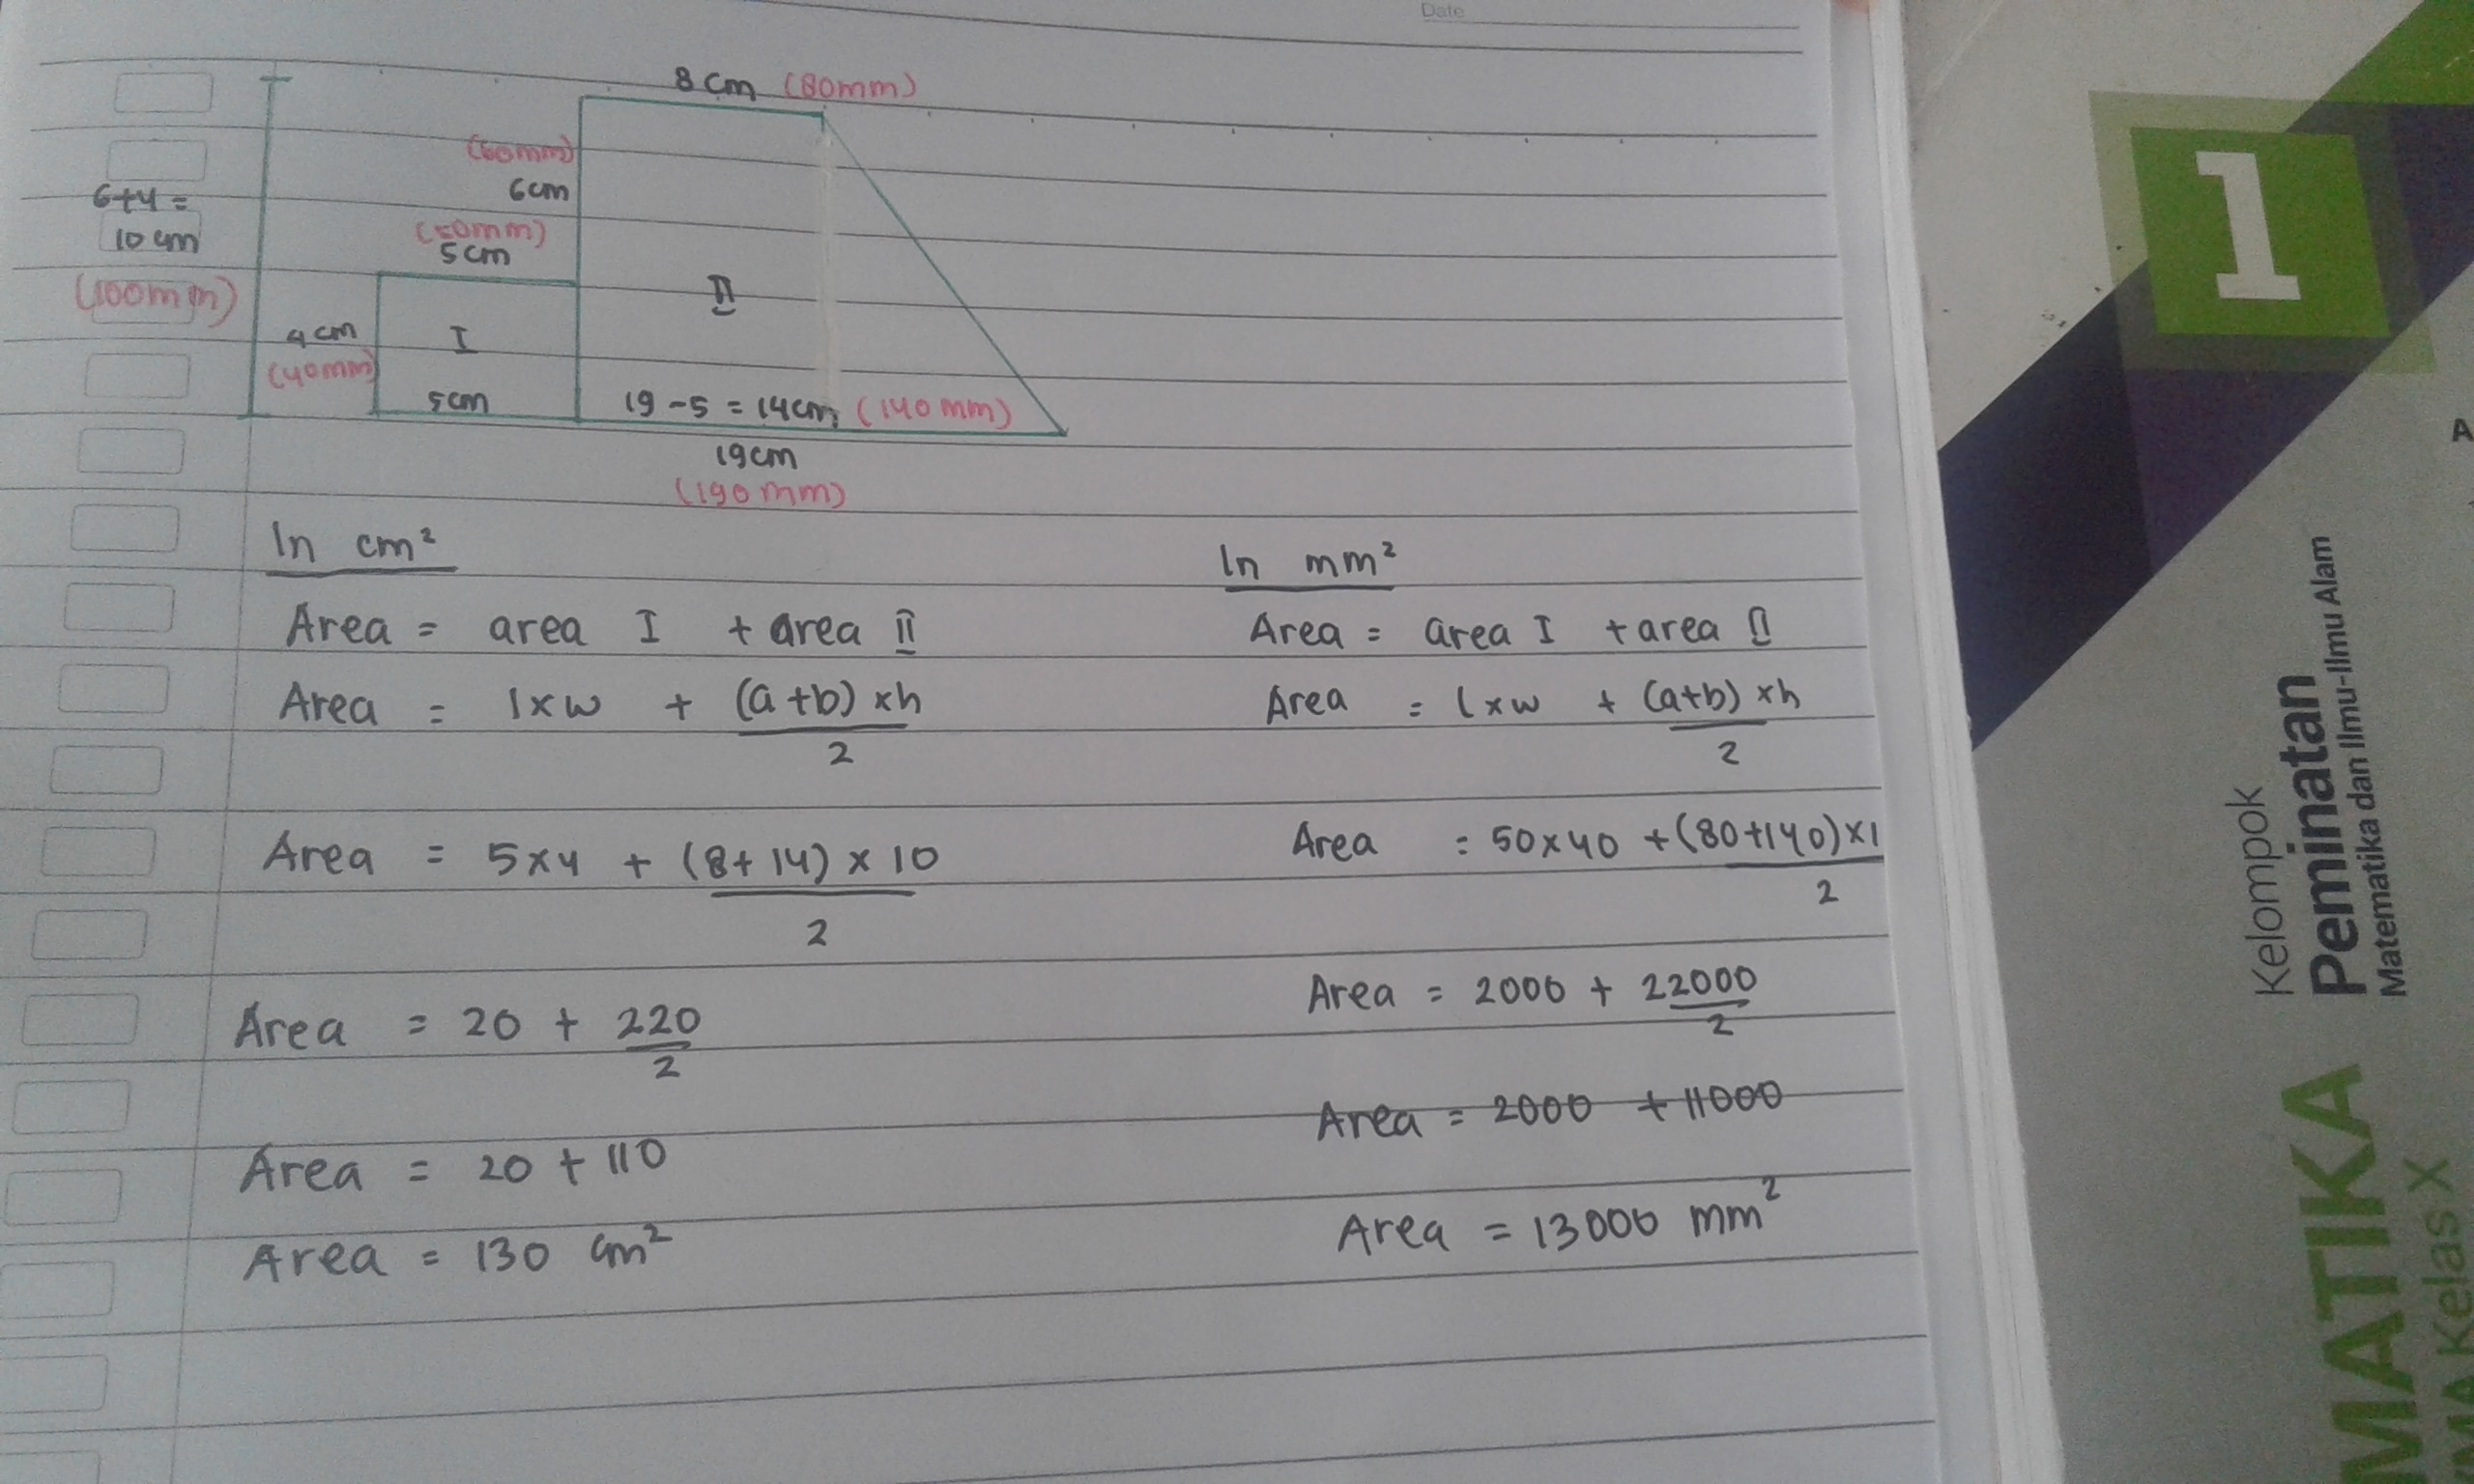 Date
8cm (80mm)
(60mm)
6cm
6+4 =
10 cm
(100mm)
(50mm)
5cm
II
4cm
(40mm)
I
5cm
19-5 = 14cm (140mm)
19cm
(190mm)
In cm²
Area = area I + area II
Area = l x w + (a+b) x h
2
Area = 5x4 + (8+14) x 10
2
Area = 20 + 220
2
Area = 20 + 110
Area = 130 cm²
In mm²
Area = area I + area II
Area = l x w + (a+b) x h
2
Area = 50x40 + (80+140) x 1
2
Area = 2000 + 22000
2
Area = 2000 + 11000
Area = 13000 mm²
1
Kelompok
Peminatan
Matematika dan Ilmu-Ilmu Alam
MATIKA
MA Kelas X
A